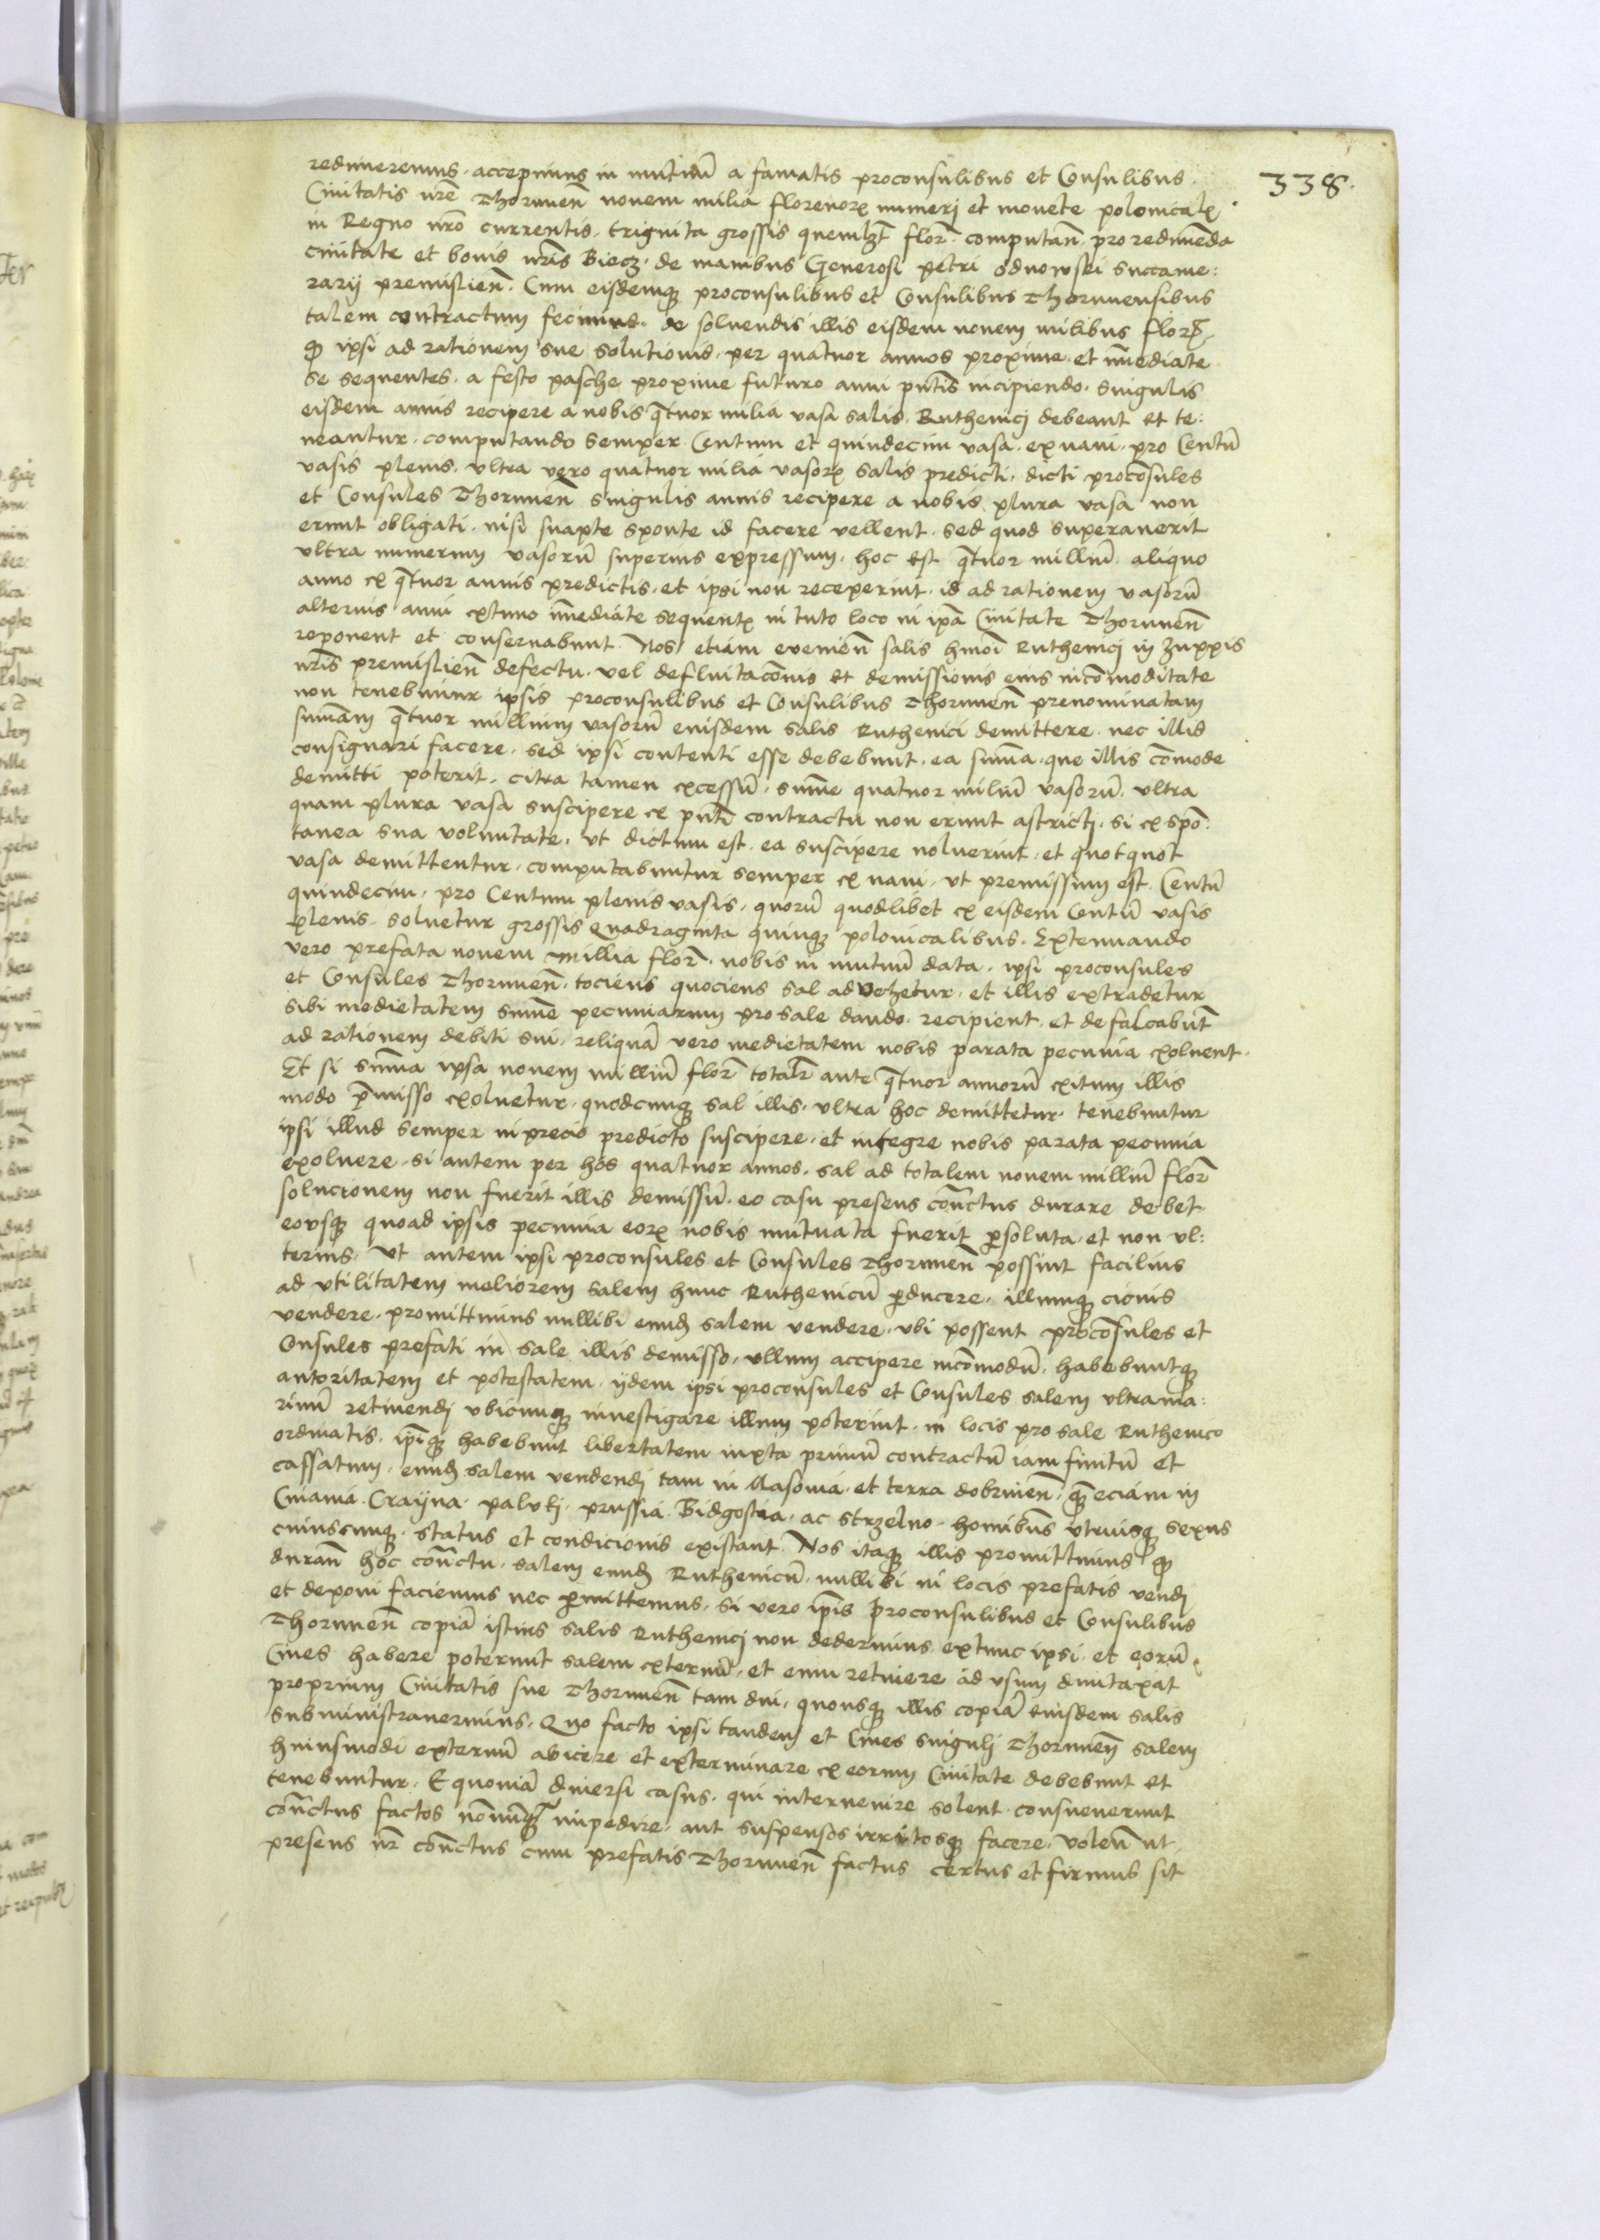 338.
redimeremus, accepimus in mutuũ a famatis proconsulibus et Consulibus
Civitatis nr̃e Thorunen̄ novem milia florenorꝝ numerj et monete polonicalꝫ
in Regno nr̃o currentis, triginta grossis quemlꝫt flor̃. computan̄, pro redimēda
civitate et bonis nr̃is Biecz, de manibus Generosi petri odnowski succame:
rarij premislien̄. Cum eisdemqꝫ proconsulibus et Consulibus Thorunensibus
talem contractum fecimus, de solvendis illis eisdem novem milibus flor̃,
ꝙ ipsi ad rationem sue solutionis, per quatuor annos proxime et īmediate
se sequentes, a festo pasche proxime futuro anni pñtis incipiendo, singulis
eisdem annis recipere a nobis q̃tuor milia vasa salis Ruthenicj debeant et te:
neantur, computando semper Centum et quindecim vasa ex navi, pro Centũ
vasis plenis, ultra vero quatuor milia vasorꝝ salis predicti, dicti proconsules
et Consules Thorunen̄ singulis annis recipere a nobis plura vasa non
erunt obligati, nisi suapte sponte id facere vellent, sed quod superaverit
ultra numerum vasorũ superius expressum, hoc est q̃tuor milliũ aliquo
anno ex q̃tuor annis predictis, et ipsi non receperint, id ad rationem vasorũ
alterius anni extunc īmediate sequentꝫ in tuto loco in ip̃a Civitate Thorunen̄
reponent et conservabunt. Nos etiam evenien̄ salis hmōi Ruthenicj in zuppis
nr̃is premislien̄ defectu, vel defluitacōnis et demissionis eius incōmoditate
non tenebimur ipsis proconsulibus et Consulibus Thorunen̄ prenominatam
sum̃am q̃tuor millium vasorũ eiusdem salis Ruthenici demittere, nec illis
consignari facere, sed ipsi contenti esse debebunt, ea sum̃a, que illis cōmode
demitti poterit, citra tamen excessũ, sum̃e quatuor miliũ vasorũ, ultra
quam plura vasa suscipere ex pñti contractu non erunt astrictj, si ex spō:
tanea sua voluntate, ut dictum est, ea suscipere noluerint, et quotquot
vasa demittentur, computabuntur semper ex navi, ut premissum est, Centũ
quindecim, pro Centum plenis vasis, quorũ quodlibet ex eisdem Centũ vasis
plenis, solvetur grossis Quadraginta quinqꝫ polonicalibus. Extenuando
vero prefata novem millia flor̃. nobis in mutuũ data, ipsi proconsules
et Consules Thorunen̄, tociens quociens sal advehetur, et illis extradetur
sibi medietatem sum̃e pecuniarum pro sale dando, recipient, et defalcabũt
ad rationem debiti sui, reliquã vero medietatem nobis parata pecunia exolvent.
Et si sum̃a ipsa novem milliũ flor̃ totalr̃ ante q̃tuor annorũ exitum illis
modo p̃misso exolvetur, quodcunqꝫ sal illis, ultra hoc demittetur, tenebuntur
ipsi illud semper in precio predicto suscipere, et integre nobis parata pecunia
exolvere, si autem per hos quatuor annos, sal ad totalem novem milliũ flor̃
solucionem non fuerit illis demissũ, eo casu presens con̄ctus durare debet
eousqꝫ quoad ipsis pecunia eorꝝ nobis mutuata fuerit p̱soluta, et non ul:
terius. Ut autem ipsi proconsules et Consules Thorunen̄ possint facilius
ad utilitatem meliorem salem hunc Ruthenicũ p̱ducere, illumqꝫ cicius
vendere, promittimus nullibi eund̃ salem vendere, ubi possent proconsules et
Consules prefati in sale illis demisso, ullum accipere incōmodũ, habebuntqꝫ
autoritatem et potestatem, ijdem ipsi proconsules et Consules salem ultrama:
rinũ retinendj ubicunqꝫ investigare illum poterint, in locis pro sale Ruthenico
ordinatis, ip̃iqꝫ habebunt libertatem iuxta primũ contractũ iam finitũ et
cassatum, eund̃ salem vendendj tam in Masovia, et terra dobrinen̄, qꝫ eciam in
Cuiavia, Crayna, palukj, prussia, Bidgostia, ac strzelno, hominibus utriusqꝫ sexus
cuiuscunqꝫ status et condicionis existant. Nos itaqꝫ illis promittimus, ꝙ
duran̄ hoc con̄ctu, salem eund̃ Ruthenicũ, nullibi in locis prefatis vendj
et deponi faciemus nec p̱mittemus, si vero ip̃is proconsulibus et Consulibus
Thorunen̄ copiã istius salis Ruthenicj non dederimus extunc ipsi et eorũ
Cives habere poterunt salem externũ, et eum retinere ad usum duntaxat
proprium Civitatis sue Thorunen̄ tam diu, quousqꝫ illis copiã eiusdem salis
subministraverimus, Quo facto ipsi tandem et Cives singulj Thorunen̄ salem
huiusmodi externũ abicere et exterminare ex eorum Civitate debebunt et
tenebuntur. E quoniã diversi casus, qui intervenire solent, consueverunt
con̄ctus factos nōnunqꝫ impedire, aut suspensos irritosqꝫ facere, volen̄ ut
presens nr̃ con̄ctus cum prefatis Thorunen̄ factus certus et firmus sit